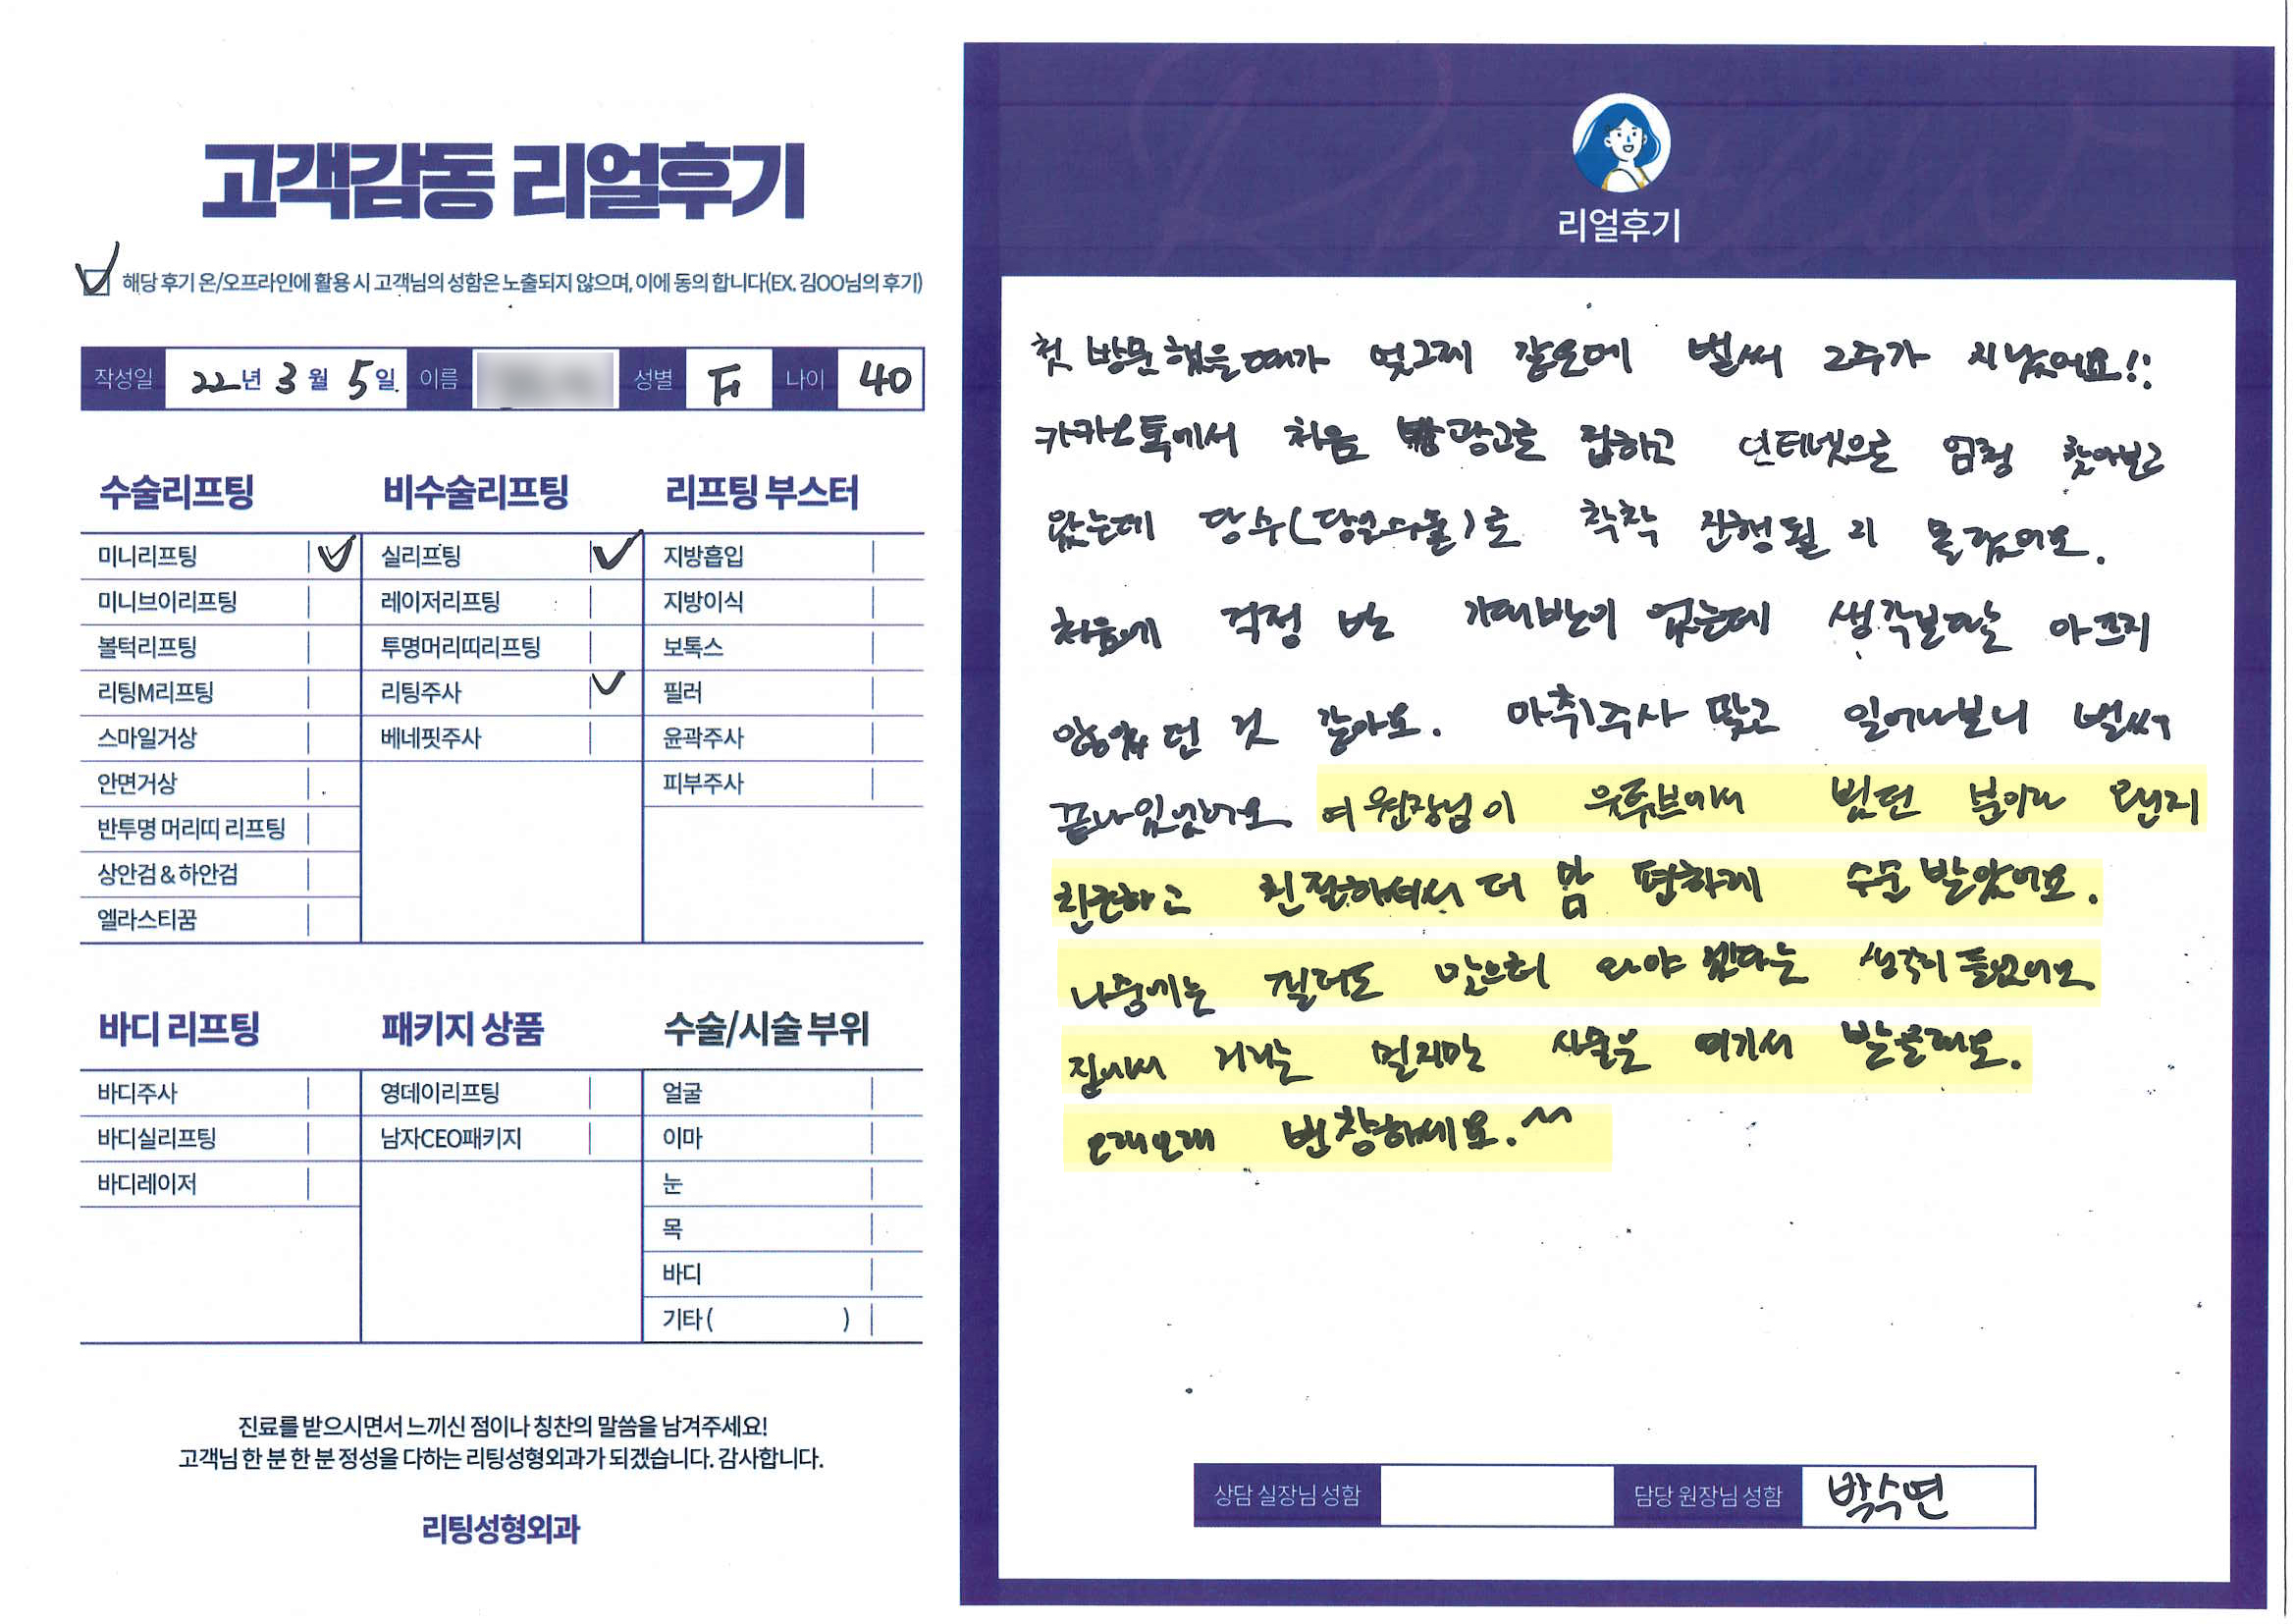 고객감동 리얼후기
해당 후기 온/오프라인에 활용 시 고객님의 성함은 노출되지 않으며, 이에 동의 합니다(EX. 김OO님의 후기)
작성일 22년 3월 5일 이름 성별 F 나이 40
수술리프팅
미니리프팅
미니브이리프팅
볼턱리프팅
리팅M리프팅
스마일거상
안면거상
반투명 머리띠 리프팅
상안검 & 하안검
엘라스티꿈
비수술리프팅
실리프팅
레이저리프팅
투명머리띠리프팅
리팅주사
베네핏주사
리프팅 부스터
지방흡입
지방이식
보톡스
필러
윤곽주사
피부주사
바디 리프팅
바디주사
바디실리프팅
바디레이저
패키지 상품
영데이리프팅
남자CEO패키지
수술/시술 부위
얼굴
이마
눈
목
바디
기타 ( )
진료를 받으시면서 느끼신 점이나 칭찬의 말씀을 남겨주세요!
고객님 한 분 한 분 정성을 다하는 리팅성형외과가 되겠습니다. 감사합니다.
리팅성형외과
리얼후기
첫 방문 했을때가 엊그제 같은데 벌써 2주가 지났어요!!
카카오톡에서 처음 광고를 접하고 인터넷으로 엄청 찾아보고
왔는데 당수(당일수술)로 착착 진행될 지 몰랐어요.
처음에 걱정 반 기대반이 었는데 생각보다는 아프지
않았던 것 같아요. 마취주사 맞고 일어나보니 벌써
끝나있었어요. 여 원장님이 유튜브에서 봤던 분이라 왠지
친근하고 친절하셔서 더 맘 편하게 수술 받았어요.
나중에는 필러도 맞으러 와야 겠다는 생각이 들었어요
집에서 거리는 멀지만 시술은 여기서 받을래요.
오래오래 번창하세요. ^^
상담 실장님 성함
담당 원장님 성함 박수연